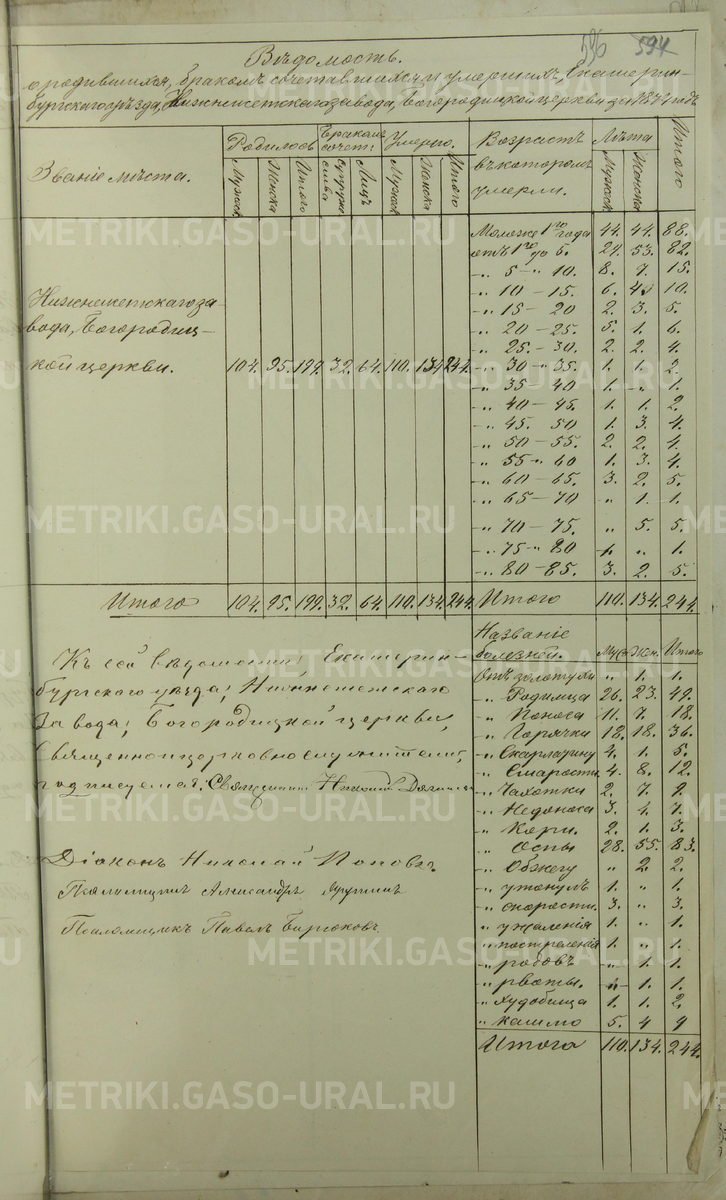 596 594
Вѣдомость.
о родившихся, бракомъ сочетавшихся и умершихъ, Екатерин-
бургскаго уѣзда, Нижнеисетскаго завода, Богородицкой церкви за 1874 годъ
Званіе мѣста. Родилось Бракомъ сочет. Умерло. Возрастъ въ которомъ умерли. Лѣта Итого
Мужск Женска Итого Супружества Лицъ Мужск Женска Итого Мужск Женска
Моложе 1го года 44. 44. 88.
отъ 1го до 5. 29. 53. 82.
-„ 5 -„ 10. 8. 7. 15.
-„ 10 - 15. 6. 4 10.
-„ 15 - 20 2. 3. 5.
-„ 20 - 25. 5. 1. 6.
-„ 25. - 30. 2. 2. 4.
Нижнеисетскаго за-
вода, Богородиц-
кой церкви. 104. 95. 199. 32. 64. 110. 134 244. -„ 30 -„ 35. 1. 1. 2.
-„ 35 - 40 1. „ 1.
-„ 40 - 45. 1. 1. 2.
-„ 45. 50 1. 3. 4.
-„ 50 - 55. 2. 2. 4.
-„ 55 -„ 60 1. 3. 4.
-„ 60 - 65. 3. 2. 5.
-„ 65 - 70 „ 1. 1.
-„ 70 - 75. „ 5. 5.
-„ 75 -„ 80 „ 1.
-„ 80 - 85. 3. 2. 5.
Итого 104. 95. 199. 32. 64. 110. 134. 244. Итого 110. 134. 244.
Названіе болезней. Муж Жен. Итого
Къ сей вѣдомости, Екатерин-
бургского уѣзда, Нижнеисетскаго
завода, Богородицкой церкви,
Священноицерковнослужители,
подписуемся: Священникъ
Діаконъ Николай Поповъ
Псаломщикъ Александръ
Псаломщикъ Павелъ Бирюковъ
Отъ золотухи „ 1. 1.
„ Родимца 26. 23. 49.
„ Поноса 11. 7. 18.
„ Горячки 18. 18. 36.
„ Скарлатину 4. 1. 5.
„ Старости 4. 8. 12.
„ Чахотки 2. 7. 9.
„ Недоноса 3. 4. 7.
„ Кори. 2. 1. 3.
„ Оспы 28. 55. 83.
„ Обжегу „ 2 2.
„ утонулъ 1. „ 1.
„ скорости. 3. „ 3.
„ ужаленія 1. „ 1.
„ пострелянія 1. „ 1.
„ родовъ „ 1. 1.
„ рвоты. „ 1. 1.
„ Худобища 1. 1. 2.
„ кашлю 5. 4 9
Итого 110. 134. 244.
METRIKI.GASO-URAL.RU